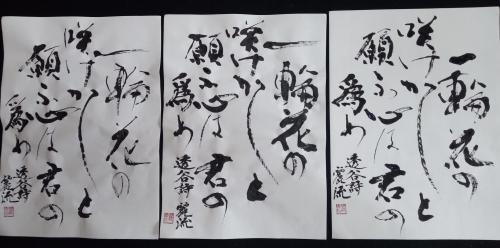 一輪花の
咲けかしと
願ふ心は君の
爲め
透谷詩
一輪花の
咲けかしと
願ふ心は君の
爲め
透谷詩
一輪花の
咲けかしと
願ふ心は君の
爲め
透谷詩